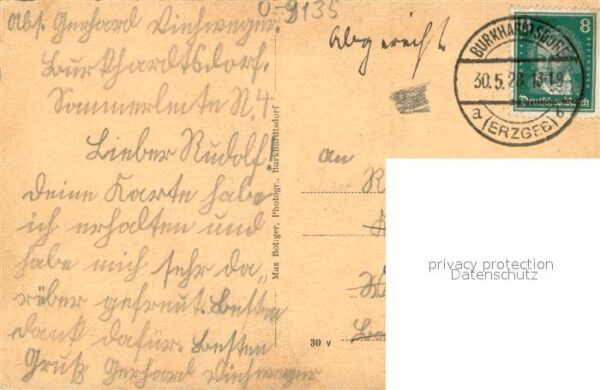 Abs. Gerhard Viehweger.
Burkhardtsdorf.
Sommerleite N. 4
Lieber Rudolf!
Deine Karte habe
ich erhalten und
habe mich sehr da„
rüber gefreut. Besten
Dank dafür. Besten
Gruß Gerhard Viehweger
0-9135
Abgereicht
BURKHARDTSDORF
30.5.28.
a (ERZGEB)
8
Deutsches Reich
an
Max Böttger, Photogr., Burkhardtsdorf
30 v
privacy protection
Datenschutz